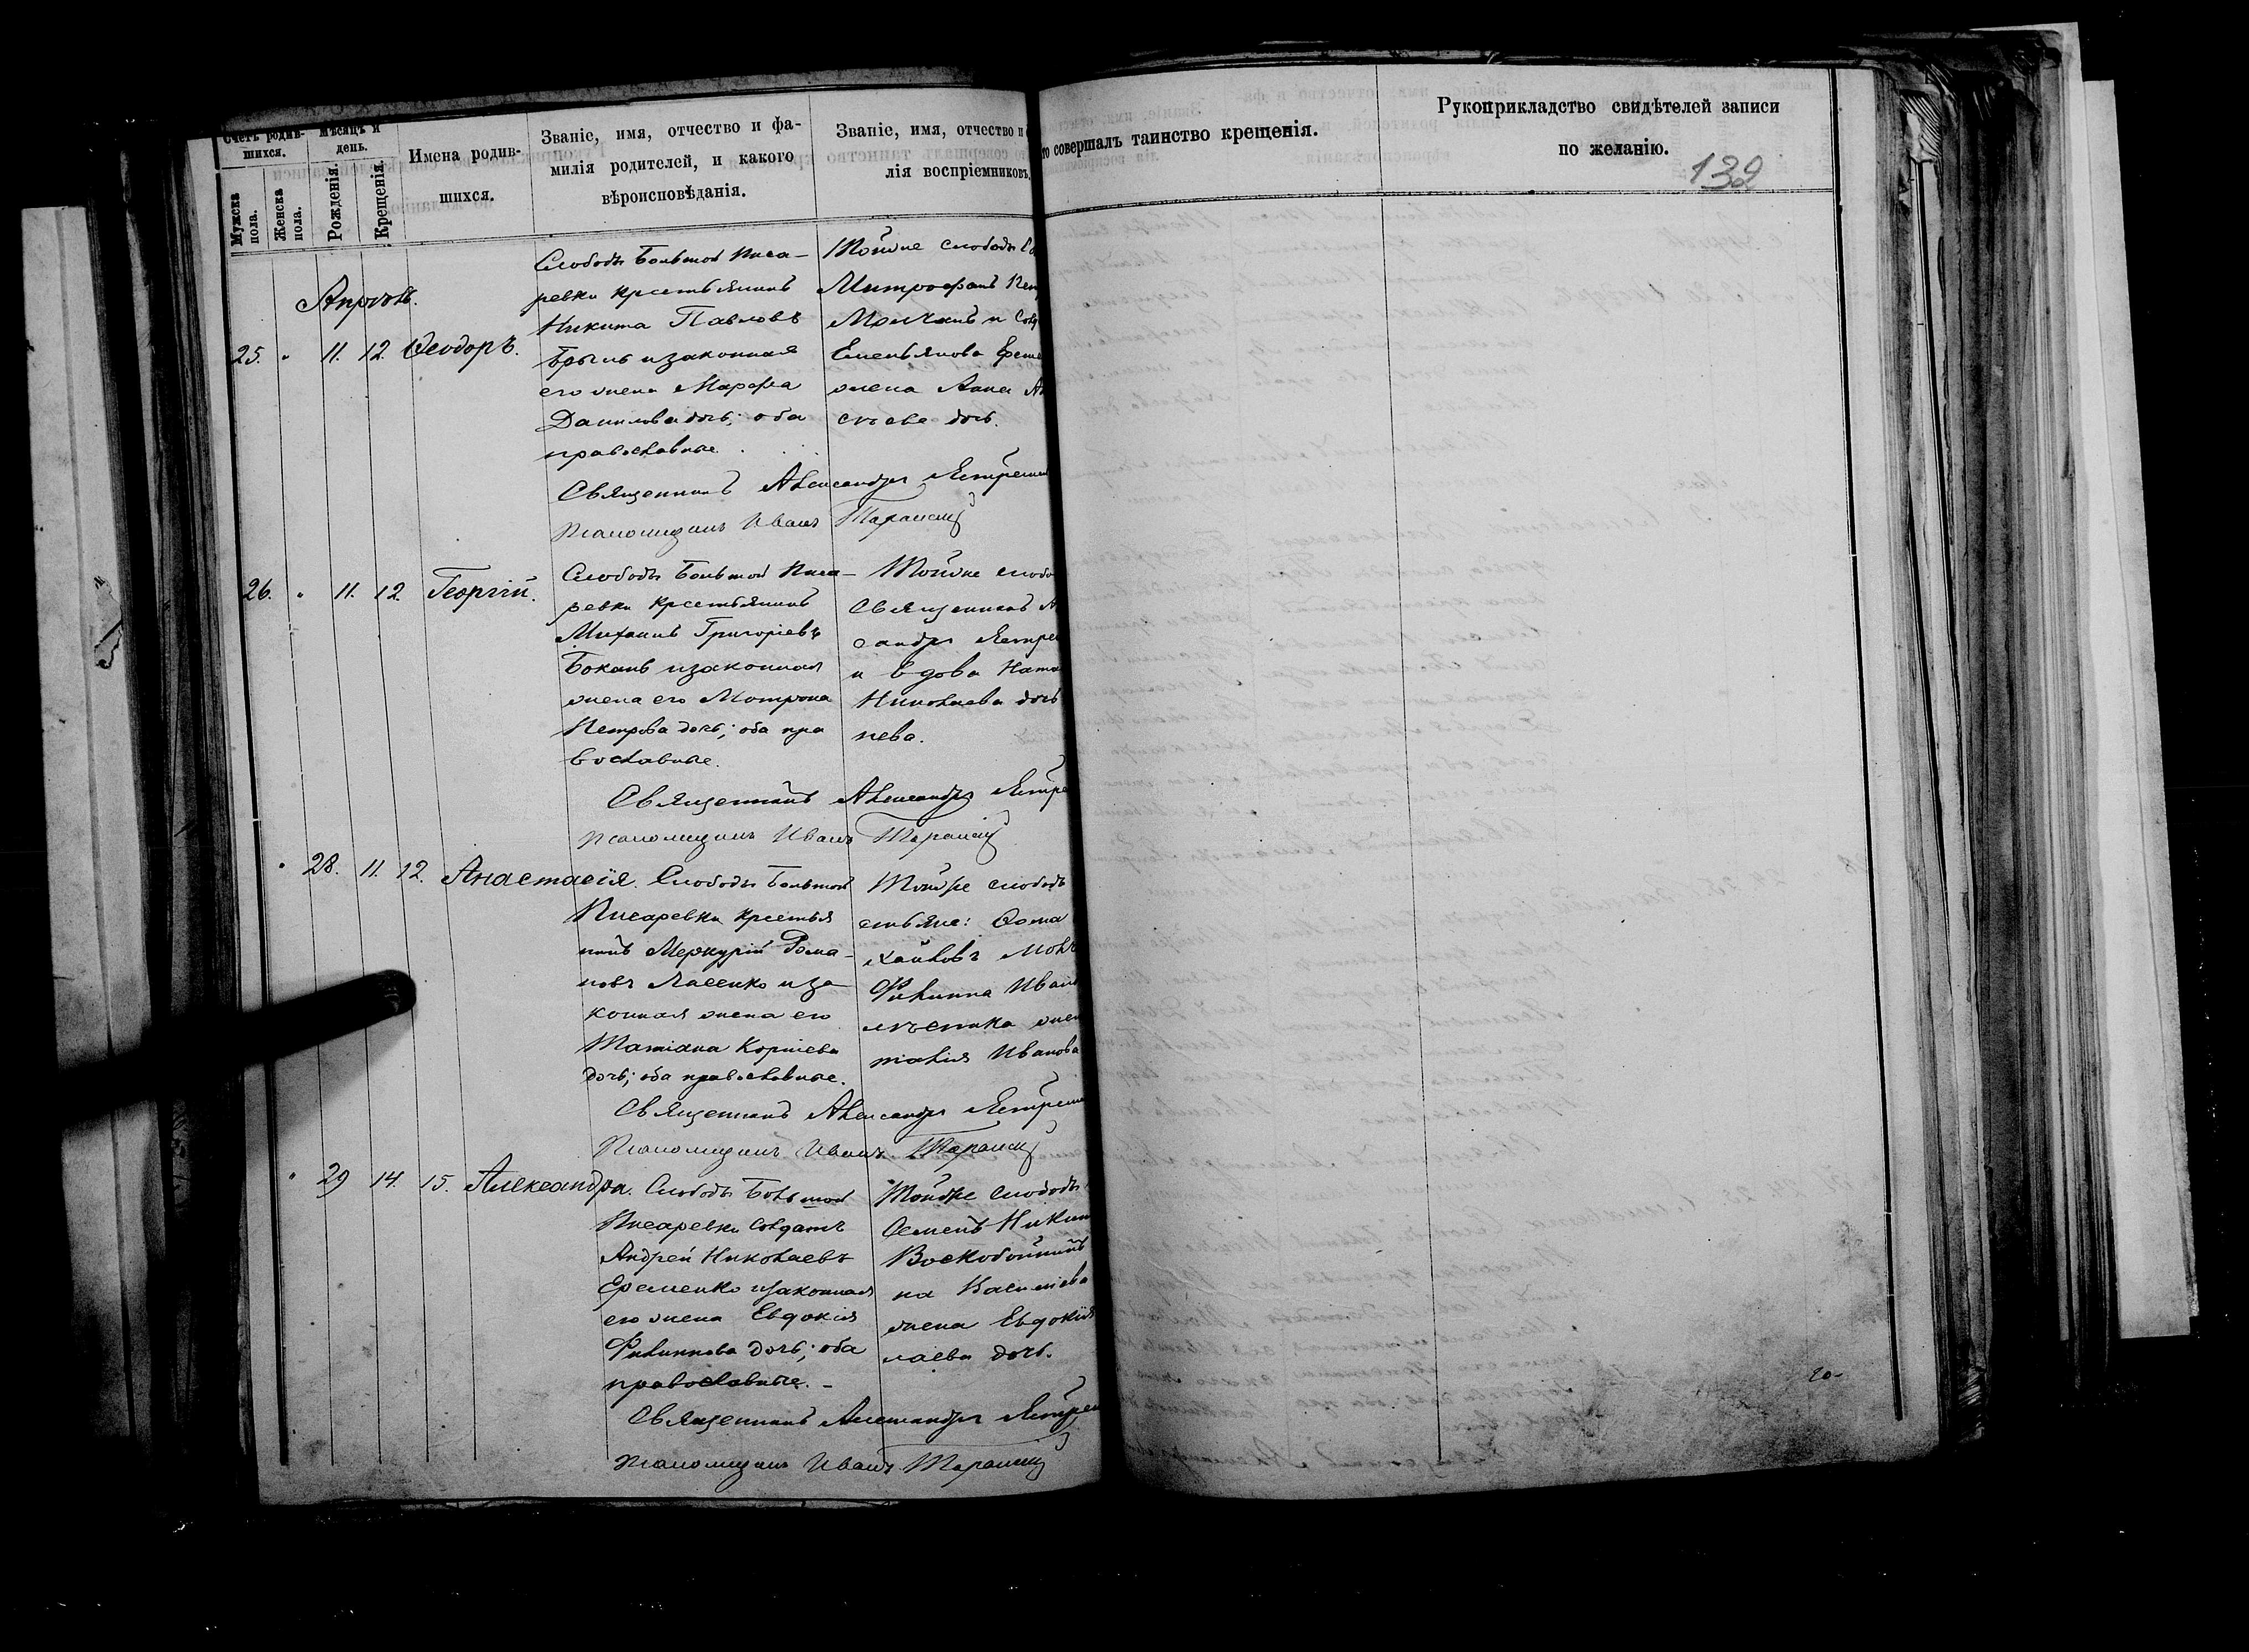 Счетъ родив-
шихся.
Мѣсяцъ и
день.
Мужска
пола.
Женска
пола.
Рожденія.
Крещенія.
Имена родив-
шихся.
Званіе, имя, отчество и фа-
милія родителей, и какого
вѣроисповѣданія.
Званіе, имя, отчество и
лія воспріемниковъ.
совершалъ таинство крещенія.
Рукоприкладство свидѣтелей записи
по желанію.
132
Апрѣль.
25. " 11. 12. Ѳеодоръ.
Слободы Большой Писа-
ревки крестьянинъ
Никита Павловъ
и законная
его жена Марфа
Данилова дочь; оба
православные.
Тойже слободы
Митрофанъ
Молчанъ и
Емельянова
жена Анна
сѣева дочь.
Священникъ Александръ
Псаломщикъ Иванъ Таранскій
26. " 11. 12. Георгій.
Слободы Большой Писа-
ревки крестьянинъ
Михаилъ Григоріевъ
Боканъ и законная
жена его Мотрона
Петрова дочь; оба пра
вославные.
Тойже слобо
Священникъ А
сандръ
и вдова Ната
Николаева дочь
нева.
Священникъ Александръ
Псаломщикъ Иванъ Таранскій
" 28. 11. 12. Анастасія.
Слободы Большой
Писаревки крестья
нинъ Меркурій Рома-
новъ Ласенко и за
конная жена его
Татіана Корніева
дочь; оба православные.
Тойже слободы
стьяне: Ѳома
хайловъ
Филиппа Ивано
жен
талія Иванова
Священникъ Александръ
Псаломщикъ Иванъ Таранскій
" 29 14. 15. Александра.
Слободы Большой
Писаревки солдатъ
Андрей Николаевъ
Еременко и законная
его жена Евдокія
Филиппова дочь; оба
православные. -
Тойже слободы
Семенъ Никит
Воскобойникъ
на Василіева
жена Евдокія
лаева дочь.
Священникъ Александръ
Псаломщикъ Иванъ Таранскій